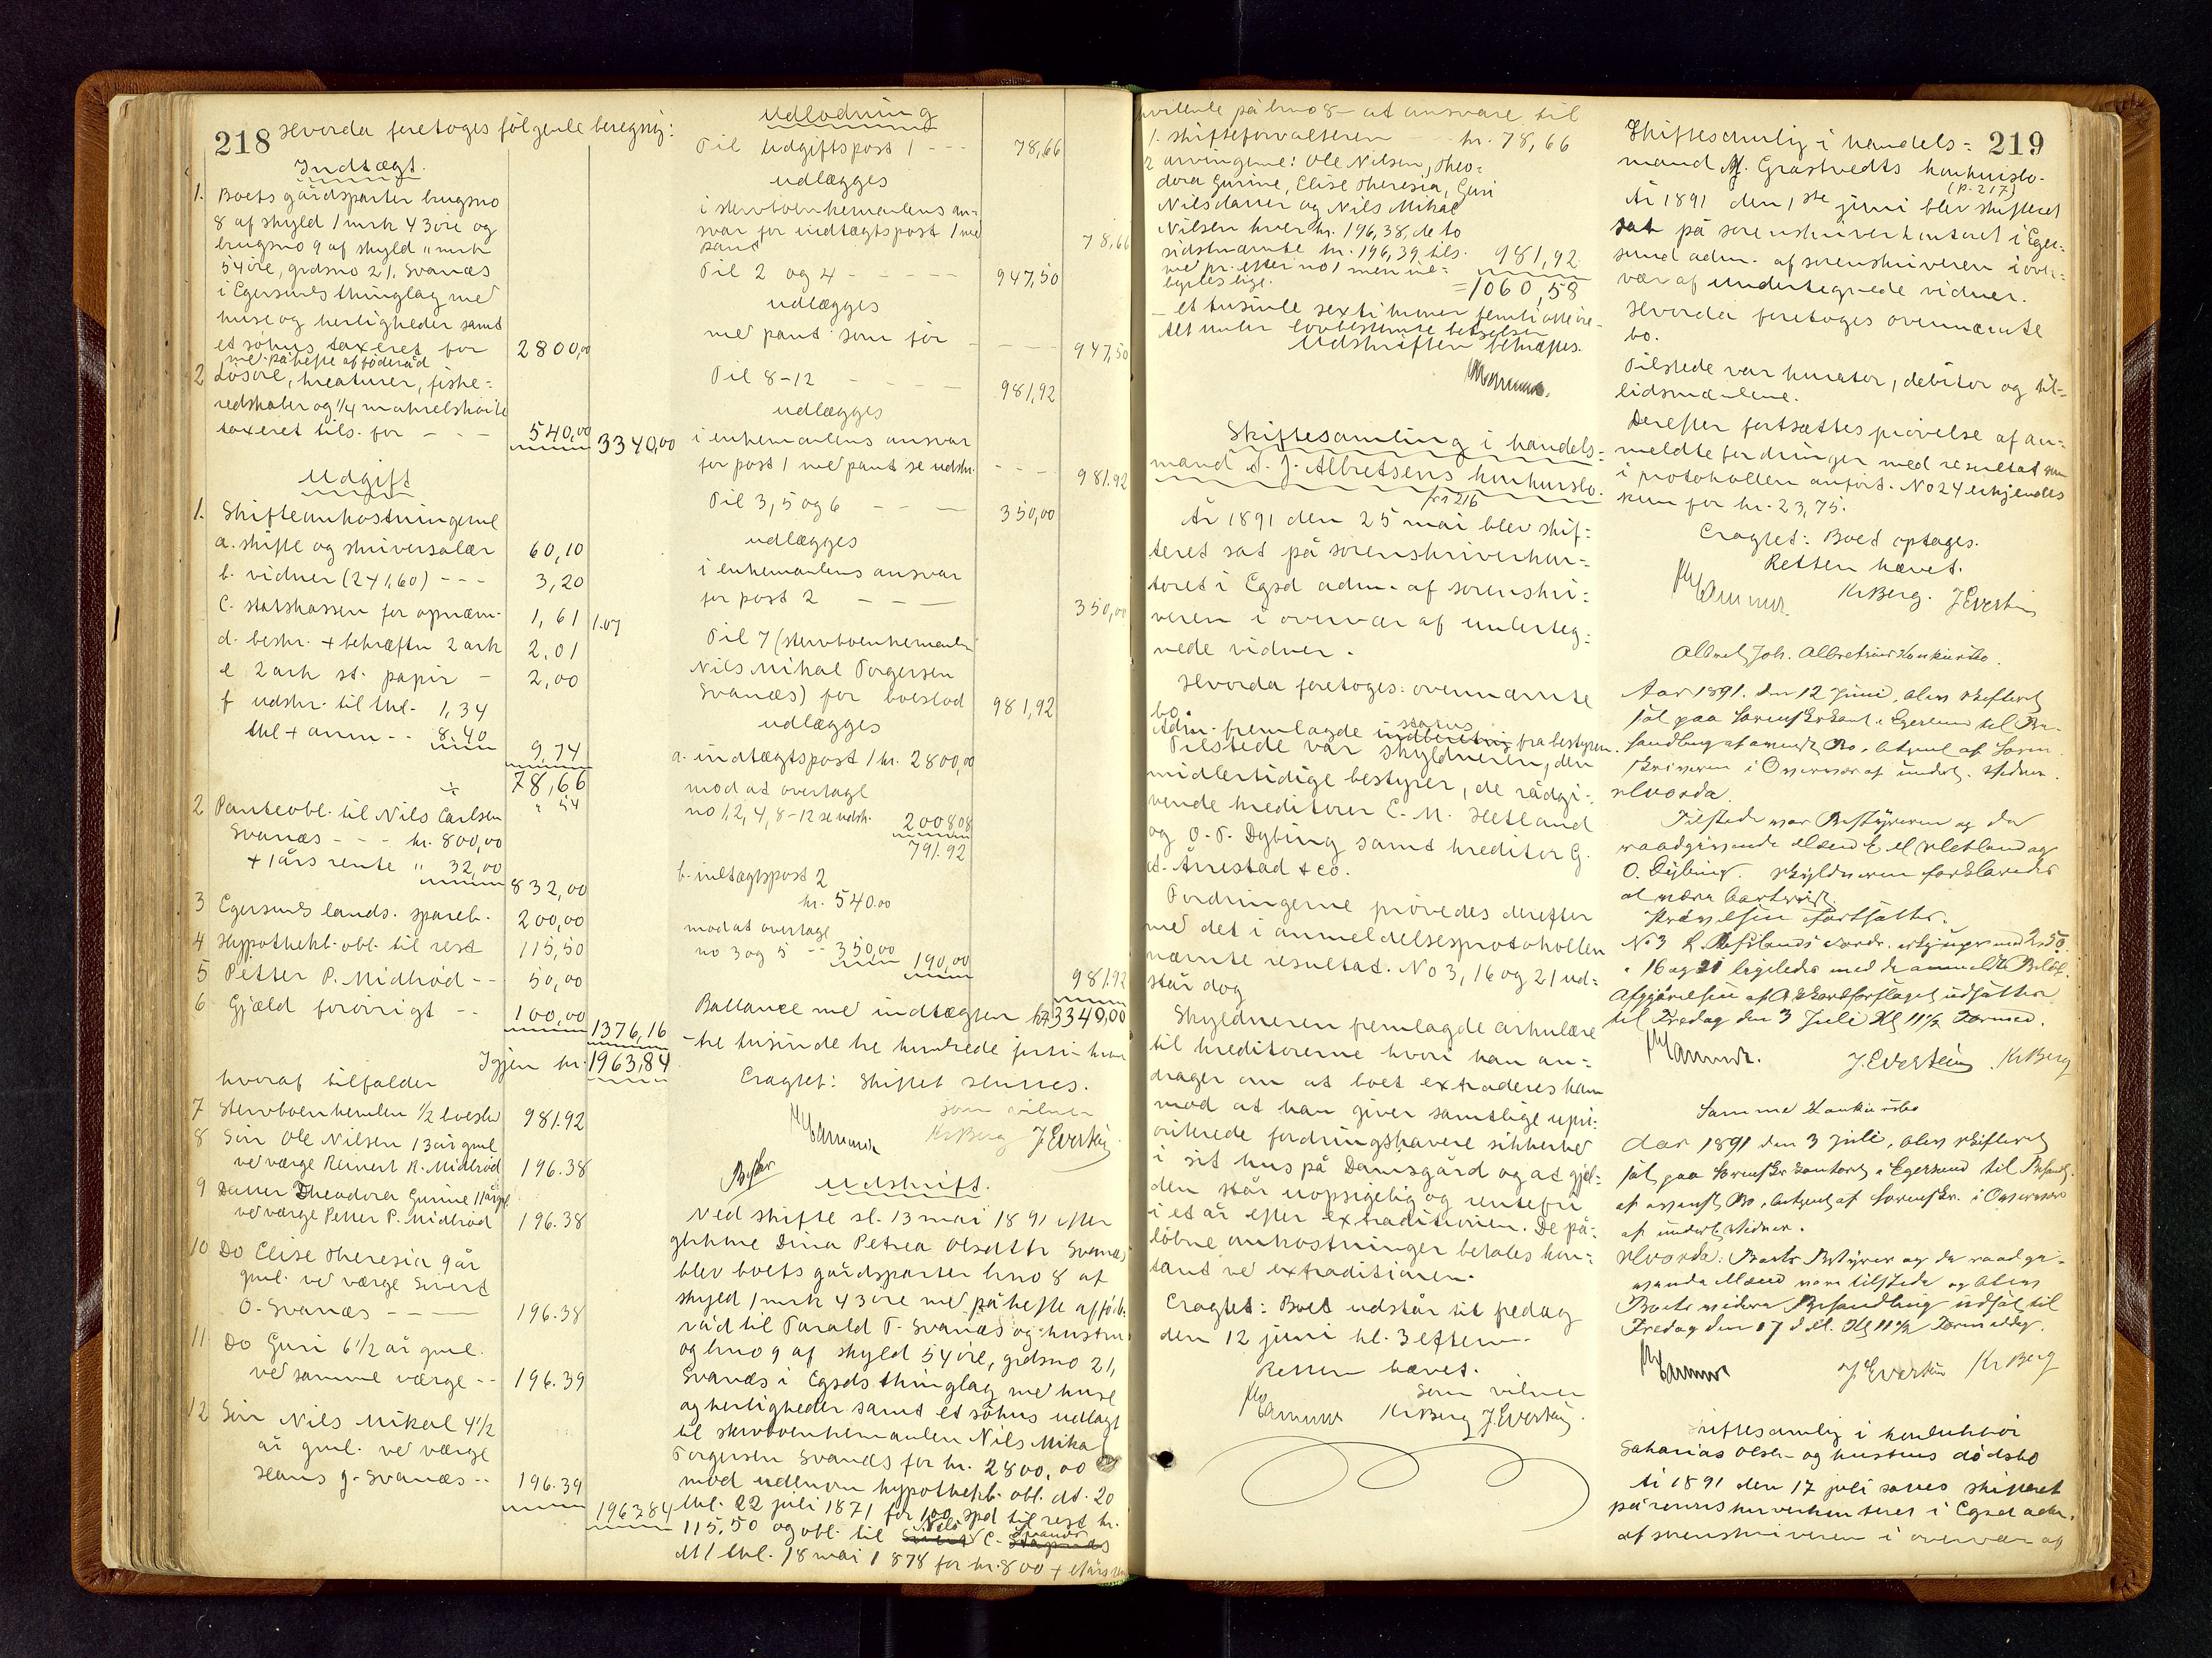 218 Hvorda foretoges følgende beregning:
Indtægt.
1. Boets gårdsparter brugsno
8 af skyld 1 mrk 43 øre og
brugsno 9 af skyld " mrk
54 øre, grdsno 21, Svanæs
i Egersunds thinglag med
huse og herligheder samt
et søhus taxeret for 2800,00
med påhefte af føderåd
2 Løsøre, kreaturer, fiske=
redskaber og 1/4 makrelskøite
taxeret tils. for - - - 540,00 3340,00
Udgift
1. Skifteomkostningerne
a. skifte og skriversalær 60,10
b. vidner (2 á 1,60) - - - 3,20
c. statskassen for opnævn. 1,61 1.07
d. beskr. + bekræftn 2 ark 2,01
e 2 ark st. papir - 2,00
f udskr. til thl. 1,34
thl + anm - - 8.40
9,74
78,66
÷ " 54
2 Panteobl. til Nils Carlsen
Svanæs - - - kr. 800,00
+ 1 års rente " 32,00
832,00
3 Egersunds lands. spareb. 200,00
4 Hypothekb. obl. til rest 115,50
5 Petter P. Midbrød - - 50,00
6 Gjæld forøvrigt - - 100,00
1376,16
Igjen kr. 1963,84
hvoraf tilfalder
7 Stervboenkemanden 1/2 boeslod 981.92
8 Søn Ole Nilsen 13 år gml
ved værge Reinert R. Midbrød 196.38
9 Datter Theodora Gurine 11 år gl
ved værge Petter P. Midbrød 196.38
10 Do Elise Theresia 9 år
gml. ved værge Sivert
O. Svanæs - - - 196.38
11 Do Guri 6 1/2 år gml.
ved samme værge - - 196.39
12 Søn Nils Mikal 4 1/2
år gml. ved værge
Hans J. Svanæs - - 196.39
1963.84
Udlodning
Til Udgiftspost 1 - - - 78,66
udlægges
i stervboenkemandens an=
svar for indtægtspost 1 med
pant 78,66
Til 2 og 4 - - - - - 947,50
udlægges
med pant som før - - - 947,50
Til 8-12 - - - - 981,92
udlægges
i enkemandens ansvar
for post 1 med pant se udskr. - - - 981.92
Til 3, 5 og 6 - - - 350,00
udlægges
i enkemandens ansvar
for post 2 - - - 350,00
Til 7 (stervboenkemanden
Nils Mikal Torgersen
Svanæs) for boeslod 981,92
udlægges
a. indtægtspost 1 kr. 2800,00
mod at overtage
no 1, 2, 4, 8-12 se udskr. 2008.08
791.92
b. indtægtspost 2
kr. 540.00
mod at overtage
no 3 og 5 - - 350,00 190,00
981.92
Ballance med indtægten kr 3340,00
- tre tusinde tre hundrede firti kroner
Eragtet: Skiftet sluttes.
som vidner
KrBerg J. Evertsen
Udskrift.
Ved skifte sl. 13 mai 1891 efter
gifte kone Dina Petrea Olsdttr Svanæs
blev boets gårdsparter brno 8 af
skyld 1 mrk 43 øre med påhefte af føde=
råd til Tarald T. Svanæs og hustru
og brno 9 af skyld 54 øre, grdsno 21,
Svanæs i Egsds thinglag med huse
og herligheder samt et søhus udlagt
til stervboenkemanden Nils Mikal
Torgersen Svanæs for kr. 2800,00
mod udlevn hypothekb. obl. dt. 20
thl. 22 juli 1871 for 100 spd til rest kr.
115,50 og obl. til Nils C. Svanæs
dt / thl. 18 mai 1878 for kr. 800 + 1 års rente
hvillende på brno 8 - at ansvare til
1. skifteforvalteren - - kr. 78,66
2 arvingerne: Ole Nilsen, Theo=
dora Gurine, Elise Theresia, Guri
Nilsdatter og Nils Mikal
Nilsen hver kr. 196,38, de to
sidstnævnte kr. 196,39 tils. 981,92
med pr. efter no 1 men ind=
byrdes lige. = 1060,58
- et tusinde sexti kroner femti otte øre -
alt under lovbestemte betingelser
Udskriften bekræftes.
Skiftesamling i handels=
mand A. J. Albretsens konkursbo.
fra 216
År 1891 den 25 mai blev skif=
teret sat på sorenskriverkon=
toret i Egsd adm. af sorenskri=
veren i overvær af underteg=
nede vidner.
Hvorda foretoges: ovennævnte
bo.
Adm. fremlagde status indberetning fra bestyreren.
Tilstede var skyldneren, den
midlertidige bestyrer, de rådgi=
vende kreditorer E. M. Hetland
og O. T. Dybing samt kreditor G.
A. Årrestad & co.
Fordringerne prøvedes derefter
med det i anmeldelsesprotokollen
nævnte resultat. No 3, 16 og 21 ud=
står dog
Skyldneren fremlagde cirkulære
til kreditorerne hvori han an=
drager om at boet extraderes ham
mod at han giver samtlige upri=
oriterede fordringshavere sikkerhed
i sit hus på Damsgård og at gjæl=
den står uopsigelig og rentefri
i et år efter extraditionen. De på=
løbne omkostninger betales kon=
tant ved extraditionen.
Eragtet: Boet udstår til fredag
den 12 juni kl. 3 efterm.
Retten hævet.
Som vidner
KrBerg J. Evertsen.
Skiftesamling i handels= 219
mand M. Grastvedts konkursbo.
(p. 217)
År 1891 den 1ste juni blev skifteret
sat på sorenskriverkontoret i Eger=
sund adm. af sorenskriveren i over=
vær af undertegnede vidner.
Hvorda foretoges ovennævnte
bo.
Tilstede var kurator, debitor og til=
lidsmændene.
Derefter fortsættes prøvelse af an=
meldte fordringer med resultat som
i protokollen anført. No 24 erkjendes
kun for kr. 23,75.
Eragtet: Boet optages.
Retten hævet.
KrBerg. J Evertsen
Albret Joh. Albretsens Konkursbo.
Aar 1891. den 12 Juni, blev Skifteret
sat paa Sorenskr.kont. i Egersund til Be-
handling af ovennt Bo, betjent af Soren
skriveren i Overvær af undert. Vidner.
Hvorda.
Tilstede var Bestyreren og de
raadgivende Mænd E M Hetland og
O. Dybing. Skyldneren forklaredes
at være bortreist.
Prøvelsen fortsattes.
No 3 fordr. med 2.50.
" 16 og 21 ligeledes med de anmeldte Beløb.
Afgjørelsen af Akkordforslaget udsættes
til Fredag den 3 Juli Kl 11 1/2 Formd.
J. Evertsen KrBerg
Samme Konkursbo
Aar 1891 den 3 Juli, blev Skifteret
sat paa Sorenskr kontoret i Egersund til Behandl.
af ovennt Bo, betjent af Sorenskr. i Overvær
af undert Vidner.
Hvorda: Boets Bestyrer og de raadgi-
vende Mænd var tilstede og blev
Boets videre Behandling udsat til
Fredag den 17 d. M. Kl 11 1/2 Formiddag.
J Evertsen KrBerg
Skiftesamling i
Sakarias Olsen og hustrus dødsbo
År 1891 den 17 juli sattes skifteret
på sorenskriverkontoret i Egsd adm.
af sorenskriveren i overvær af